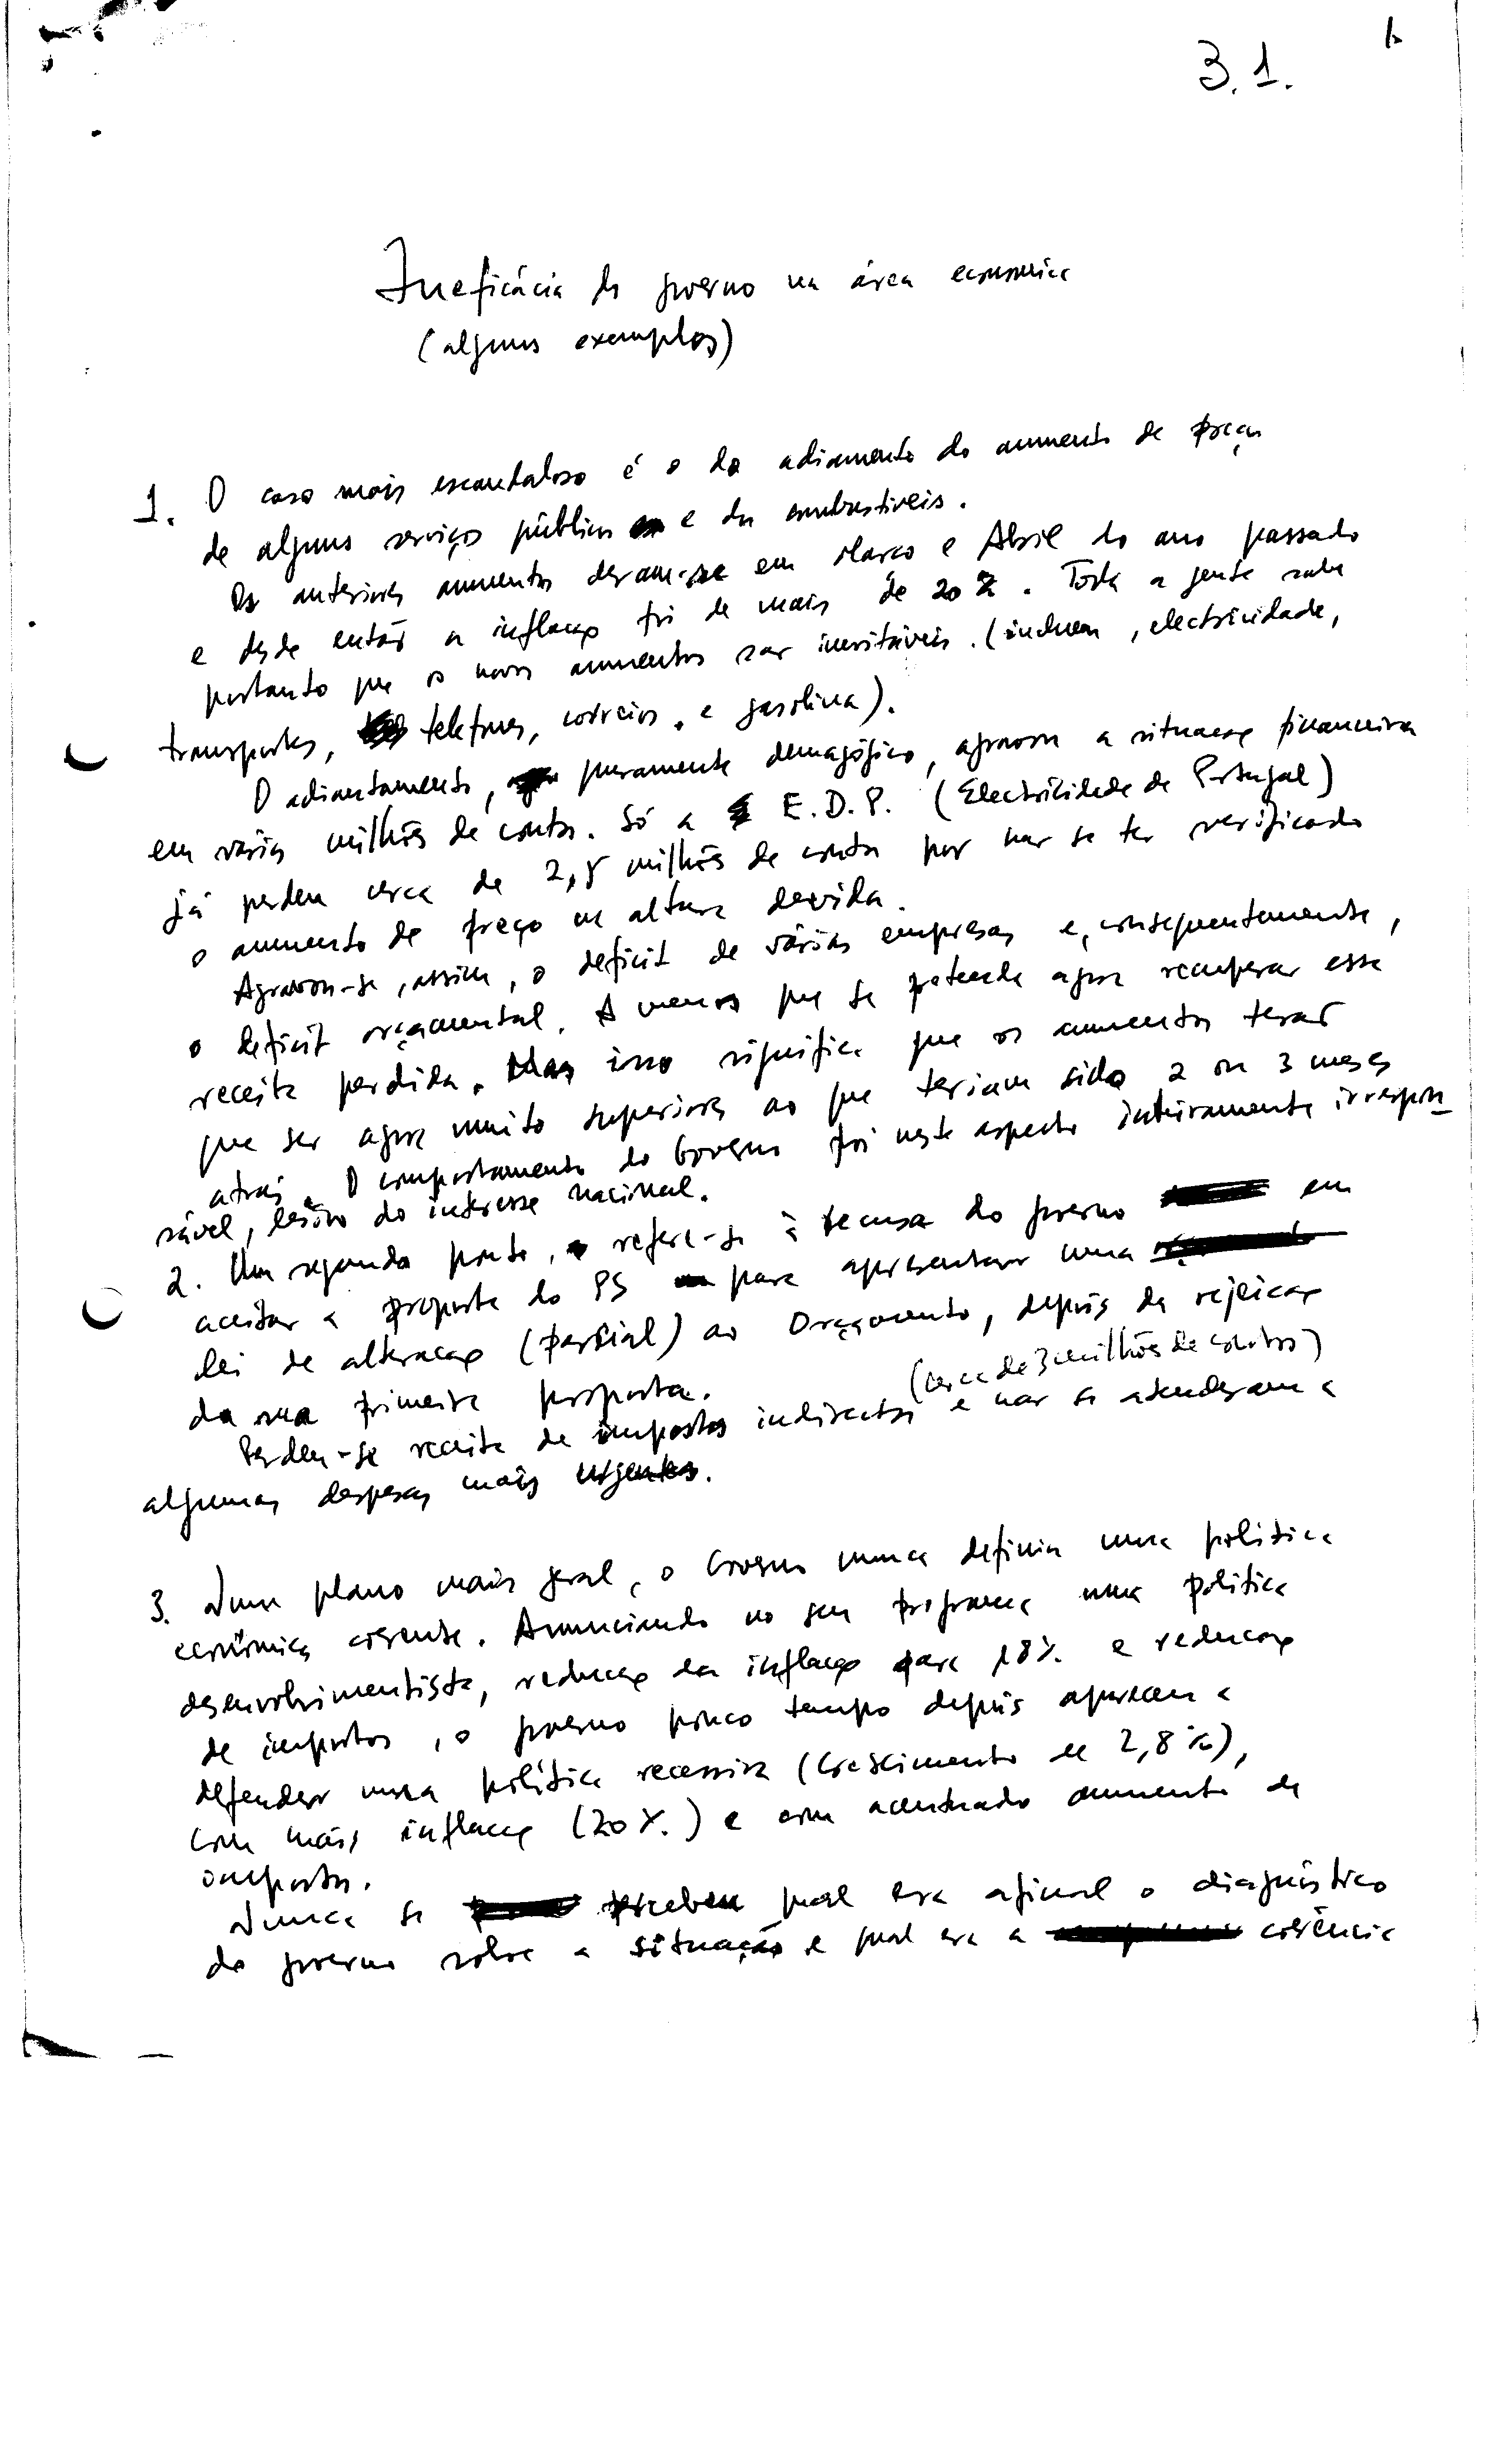 3.1.
Ineficácia do governo na área economica
(alguns exemplos)
1. O caso mais escandaloso é o do adiamento do aumento de preços
de alguns serviços públicos e dos combustíveis.
Os anteriores aumentos deram-se em Março e Abril do ano passado
e desde então a inflação foi de mais de 20%. Toda a gente sabe
portanto que os novos aumentos são inevitáveis. (incluem, electricidade,
transportes, telefones, correios, e gasolina).
O adiantamento, puramente demagógico, agravou a situação financeira
em vários milhões de contos. Só a E.D.P. (Electricidade de Portugal)
já perdeu cerca de 2,5 milhões de contos por não se ter verificado
o aumento de preço na altura devida.
Agravou-se, assim, o deficit de várias empresas e, consequentemente,
o deficit orçamental. A menos que se pretenda agora recuperar essa
receita perdida. Mas isso significa que os aumentos terão
que ser agora muito superiores ao que teriam sido 2 ou 3 meses
atrás. O comportamento do Governo foi neste aspecto inteiramente irrespon
sável, lesivo do interesse nacional.
2. Um segundo ponto, refere-se à recusa do governo em
aceitar a proposta do PS para apresentar uma
lei de alteração (parcial) ao Orçamento, depois da rejeição
da sua primeira proposta.
(cerca de 3 milhões de contos)
Perdeu-se receita de impostos indirectos e não se atenderam a
algumas despesas mais urgentes.
3. Num plano mais geral, o Governo nunca definiu uma política
económica coerente. Anunciando no seu programa uma política
desenvolvimentista, redução da inflação para 18% e redução
de impostos, o governo pouco tempo depois apareceu a
defender uma política recessiva (crescimento de 2,8%),
com mais inflação (20%.) e com acentuado aumento de
impostos.
Nunca se percebeu qual era afinal o diagnóstico
do governo sobre a situação e qual era a coerência